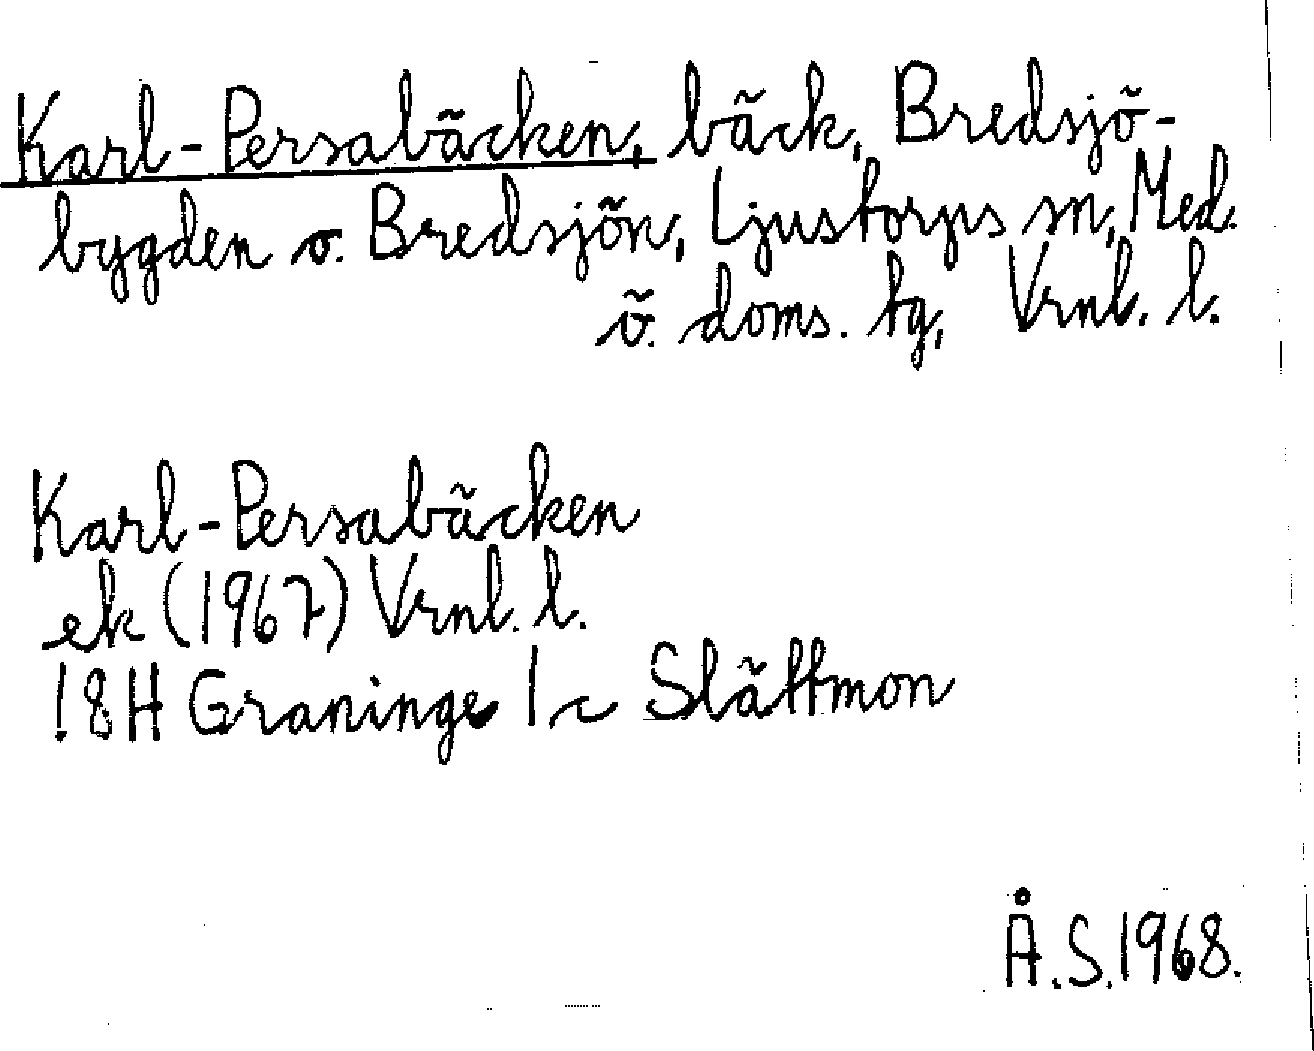 Karl-Persabäcken, bäck, Bredsjö-
bygden o. Bredsjön, Ljustorps sn, Med.
ö. doms. tg, Vrnl. l.
Karl-Persabäcken
ek (1967) Vrnl. l.
18H Graninge 1c Slättmon
Å.S.1968.